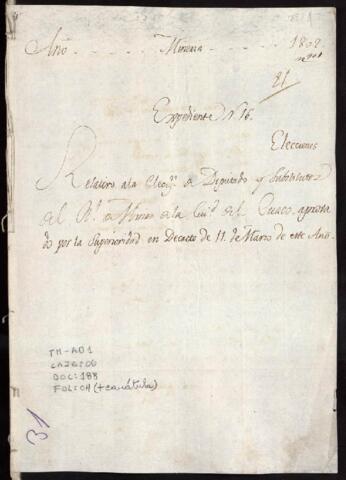 Año - - - - - Mineria - - - - 1802
21
Expediente N. 16.
Elecciones
Relativo a la Elecn. de Diputado y Substitutos
del Rl. de Minas de la Ciud. del Cuzco, aproba
do por la Superioridad en Decreto de 11 de Marzo de este Año.
TM-AD1
CAJA:06
DOC:188
FOL:04 (+carátula)
31